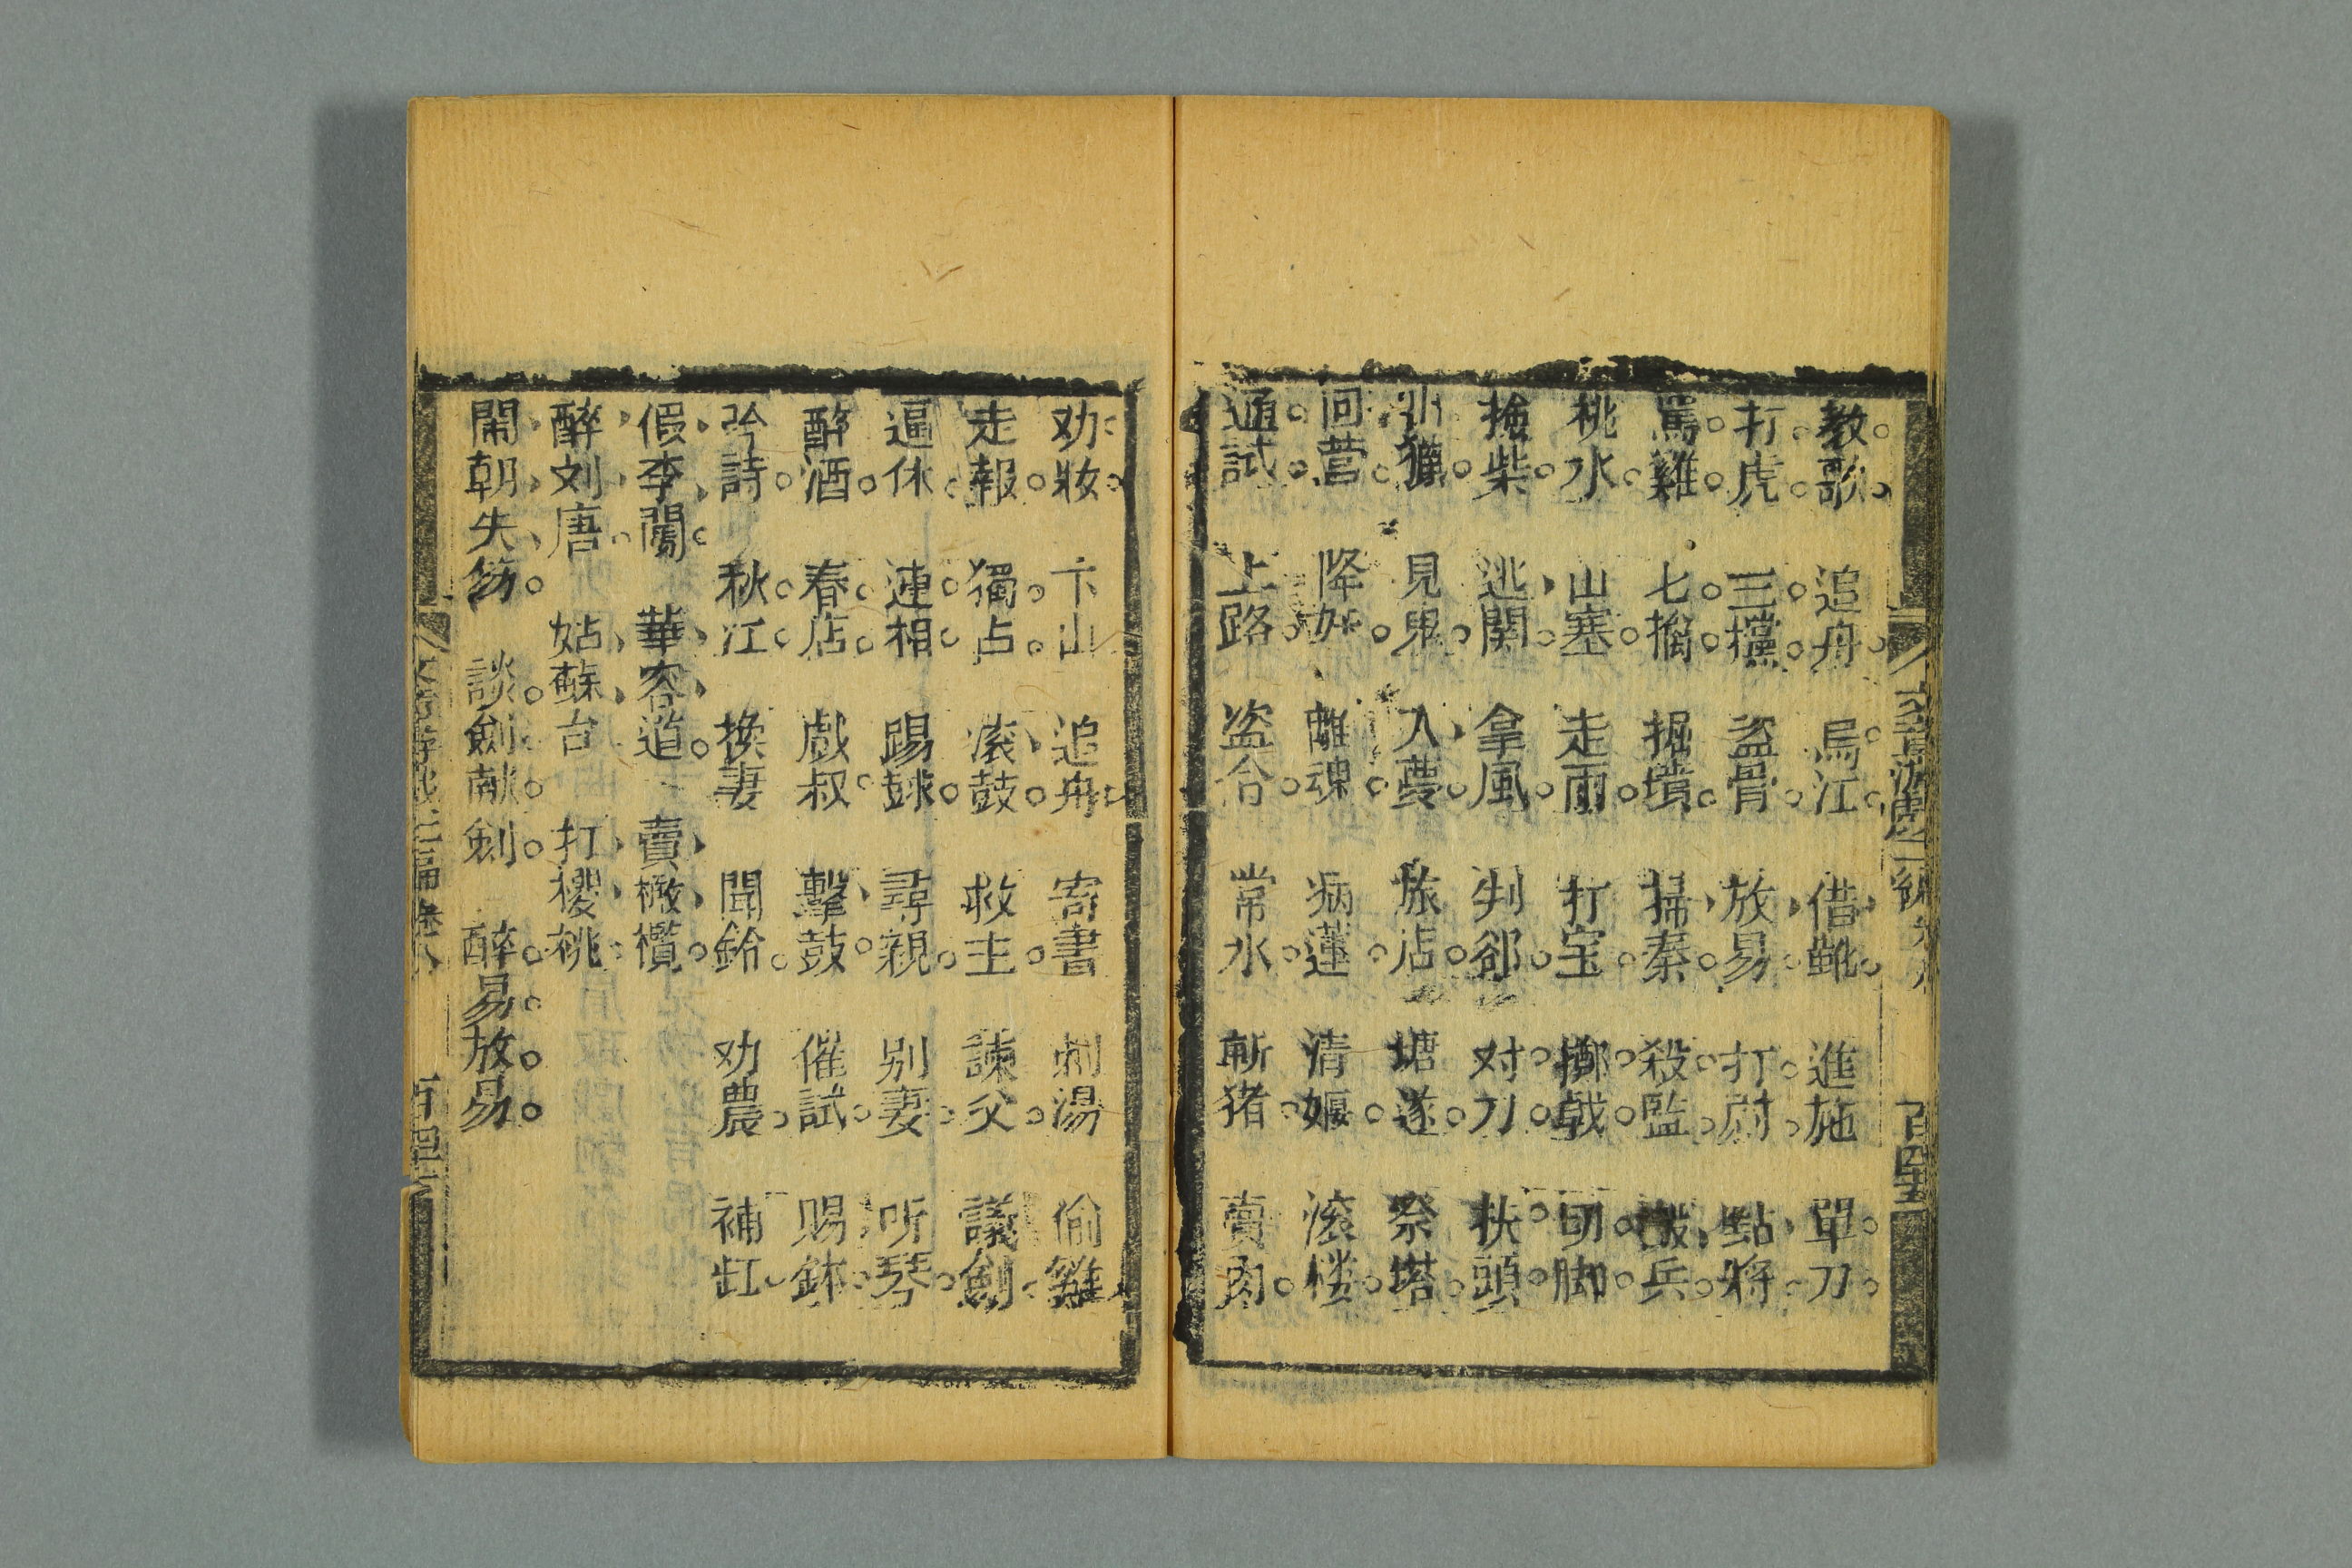 教歌 追舟 烏江 借靴 進施 單刀
打虎 三擋 盗骨 放易 打尉 點將
罵雞 七擒 掘墳 掃秦 殺監 兵
挑水 山塞 走雨 打宝 擲戟 切脚
撿柴 逃関 拿風 判 对刀 扶頭
猟 見鬼 入夢 旅店 塘 祭塔
回营 降妖 離魂 病蓮 清 滚楼
通試 上路 盗令 常水 斬猪 賣肉
劝妝 卞山 追舟 寄書 刺湯 偷雞
走報 獨占 滚鼓 救主 諫父 議劍
逼休 連相 踢毬 尋親 别妻 听琴
醉酒 春店 戯叔 擊鼓 催試 赐鉢
吟詩 秋江 換妻 聞鈴 劝農 補缸
假李闖 華容道 賣橄欖
醉刘唐 姑蘇台 打櫻桃
鬧朝失笏 談劍献劍 醉易放易